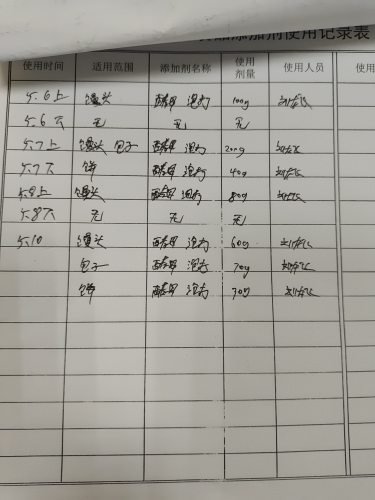 添加剂使用记录表
使用时间 适用范围 添加剂名称 使用剂量 使用人员 使用
5.6上 馒头 酵母 泡打 100g
5.6下 无 无 无
5.7上 馒头 包子 酵母 泡打 200g
5.7下 饼 酵母 泡打 40g
5.8上 馒头 酵母 泡打 80g
5.8下 无 无 无
5.10 馒头 酵母 泡打 60g
包子 酵母 泡打 70g
饼 酵母 泡打 30g